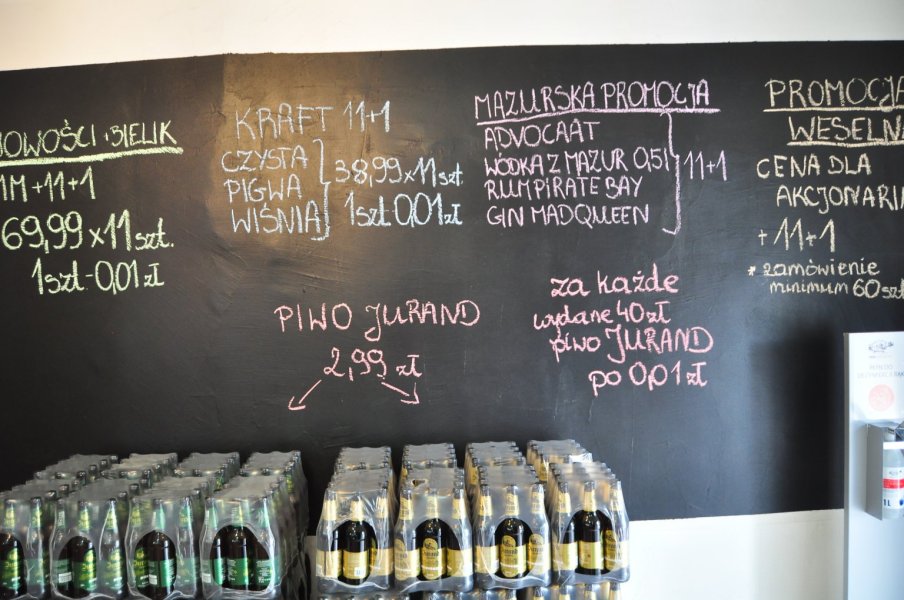 NOWOŚCI + BIELIK
1M+11+1
69,99 x 11 szt.
1szt - 0,01 zł
KRAFT 11+1
CZYSTA
PIGWA
WIŚNIA
38,99 x 11 szt.
1szt 0,01 zł
MAZURSKA PROMOCJA
ADVOCAAT
WÓDKA Z MAZUR 0,5l
RUM PIRATE BAY
GIN MADQUEEN
11+1
PROMOCJA
WESELNA
CENA DLA
AKCJONARI
+ 11+1
* zamówienie
minimum 60 szt
PIWO JURAND
2,99 zł
za każde
wydane 40 zł
piwo JURAND
po 0,01 zł